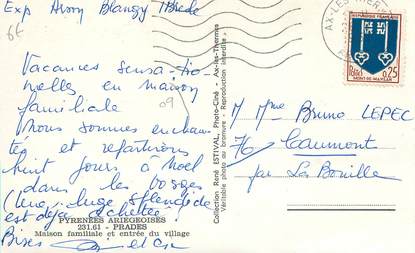 Exp Avon Blangy / Bresle
6€
Vacances sensatio-
nelles en maison
familiale
09
Nous sommes enchan-
tés et repartirons
huit jours à Noël
dans les Vosges
(une luge splendide
est déjà achetée!
Bises
PYRENÉES ARIEGEOISES
231.61 - PRADES
Maison familiale et entrée du village
Collection René ESTIVAL, Photo-Ciné - Ax-les-Thermes
Véritable photo au bromure - Reproduction interdite
AX-LES-THER
REPUBLIQUE FRANÇAISE
POSTES
0,25
MONT-DE-MARSAN
M Mme Bruno LEPEC
76 Caumont
par La Bouille